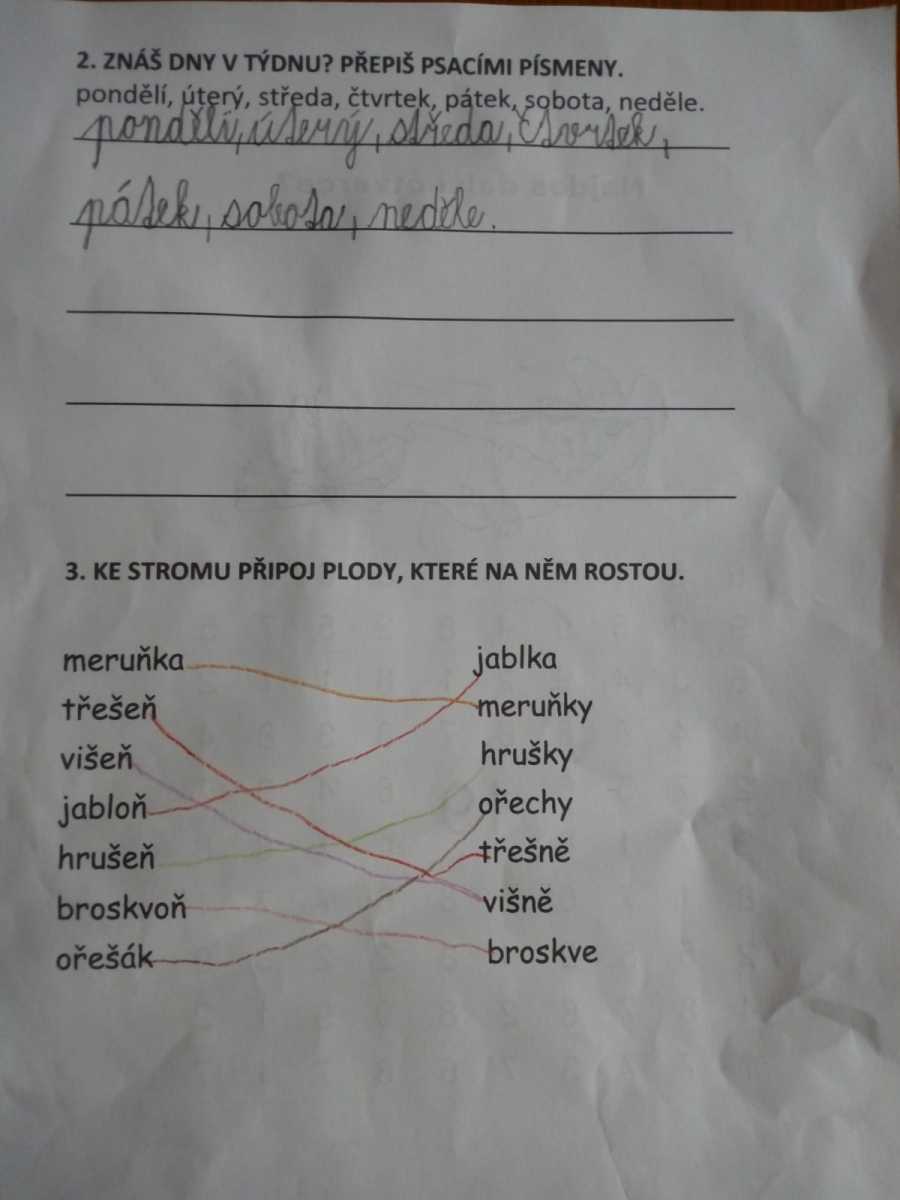 2. ZNÁŠ DNY V TÝDNU? PŘEPIŠ PSACÍMI PÍSMENY.
pondělí, úterý, středa, čtvrtek, pátek, sobota, neděle.
pondělí, úterý, středa, čtvrtek,
pátek, sobota, neděle.
3. KE STROMU PŘIPOJ PLODY, KTERÉ NA NĚM ROSTOU.
meruňka jablka
třešeň meruňky
višeň hrušky
jabloň ořechy
hrušeň třešně
broskvoň višně
ořešák broskve